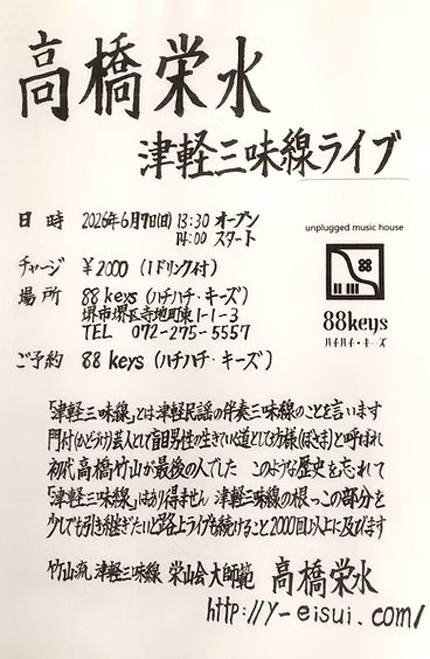 高橋栄水
津軽三味線ライブ
日時 2026年6月7日(日) 13:30 オープン
14:00 スタート
チャージ ¥2000 (1ドリンク付)
場所 88 keys (ハチハチ・キーズ)
堺市堺区寺地町東1-1-3
TEL 072-275-5557
ご予約 88 keys (ハチハチ・キーズ)
unplugged music house
88
88keys
ハチハチ・キーズ
「津軽三味線」とは津軽民謡の伴奏三味線のことを言います
門付(かどづけ)芸人として盲目男性の生きていく道として坊様(ぼさま)と呼ばれ
初代高橋竹山が最後の人でした このような歴史を忘れて
「津軽三味線」はあり得ません 津軽三味線の根っこの部分を
少しでも引き継ぎたいと路上ライブも続けること2000回以上に及びます
竹山流津軽三味線 栄山会大師範 高橋栄水
http://y-eisui.com/